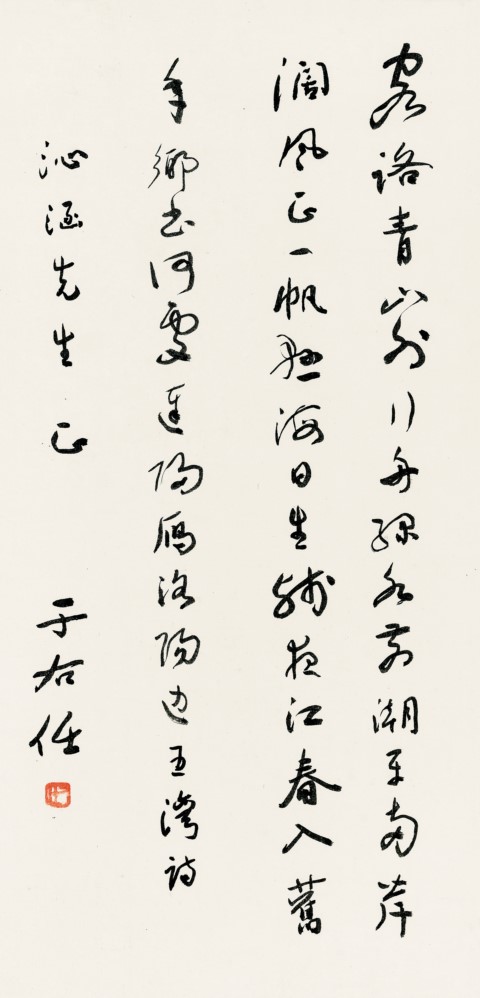 客路青山外行舟綠水前潮平兩岸
濶風正一帆懸海日生殘夜江春入舊
年鄉書何處達歸雁洛陽邊王灣詩
沁涵先生正 于右任